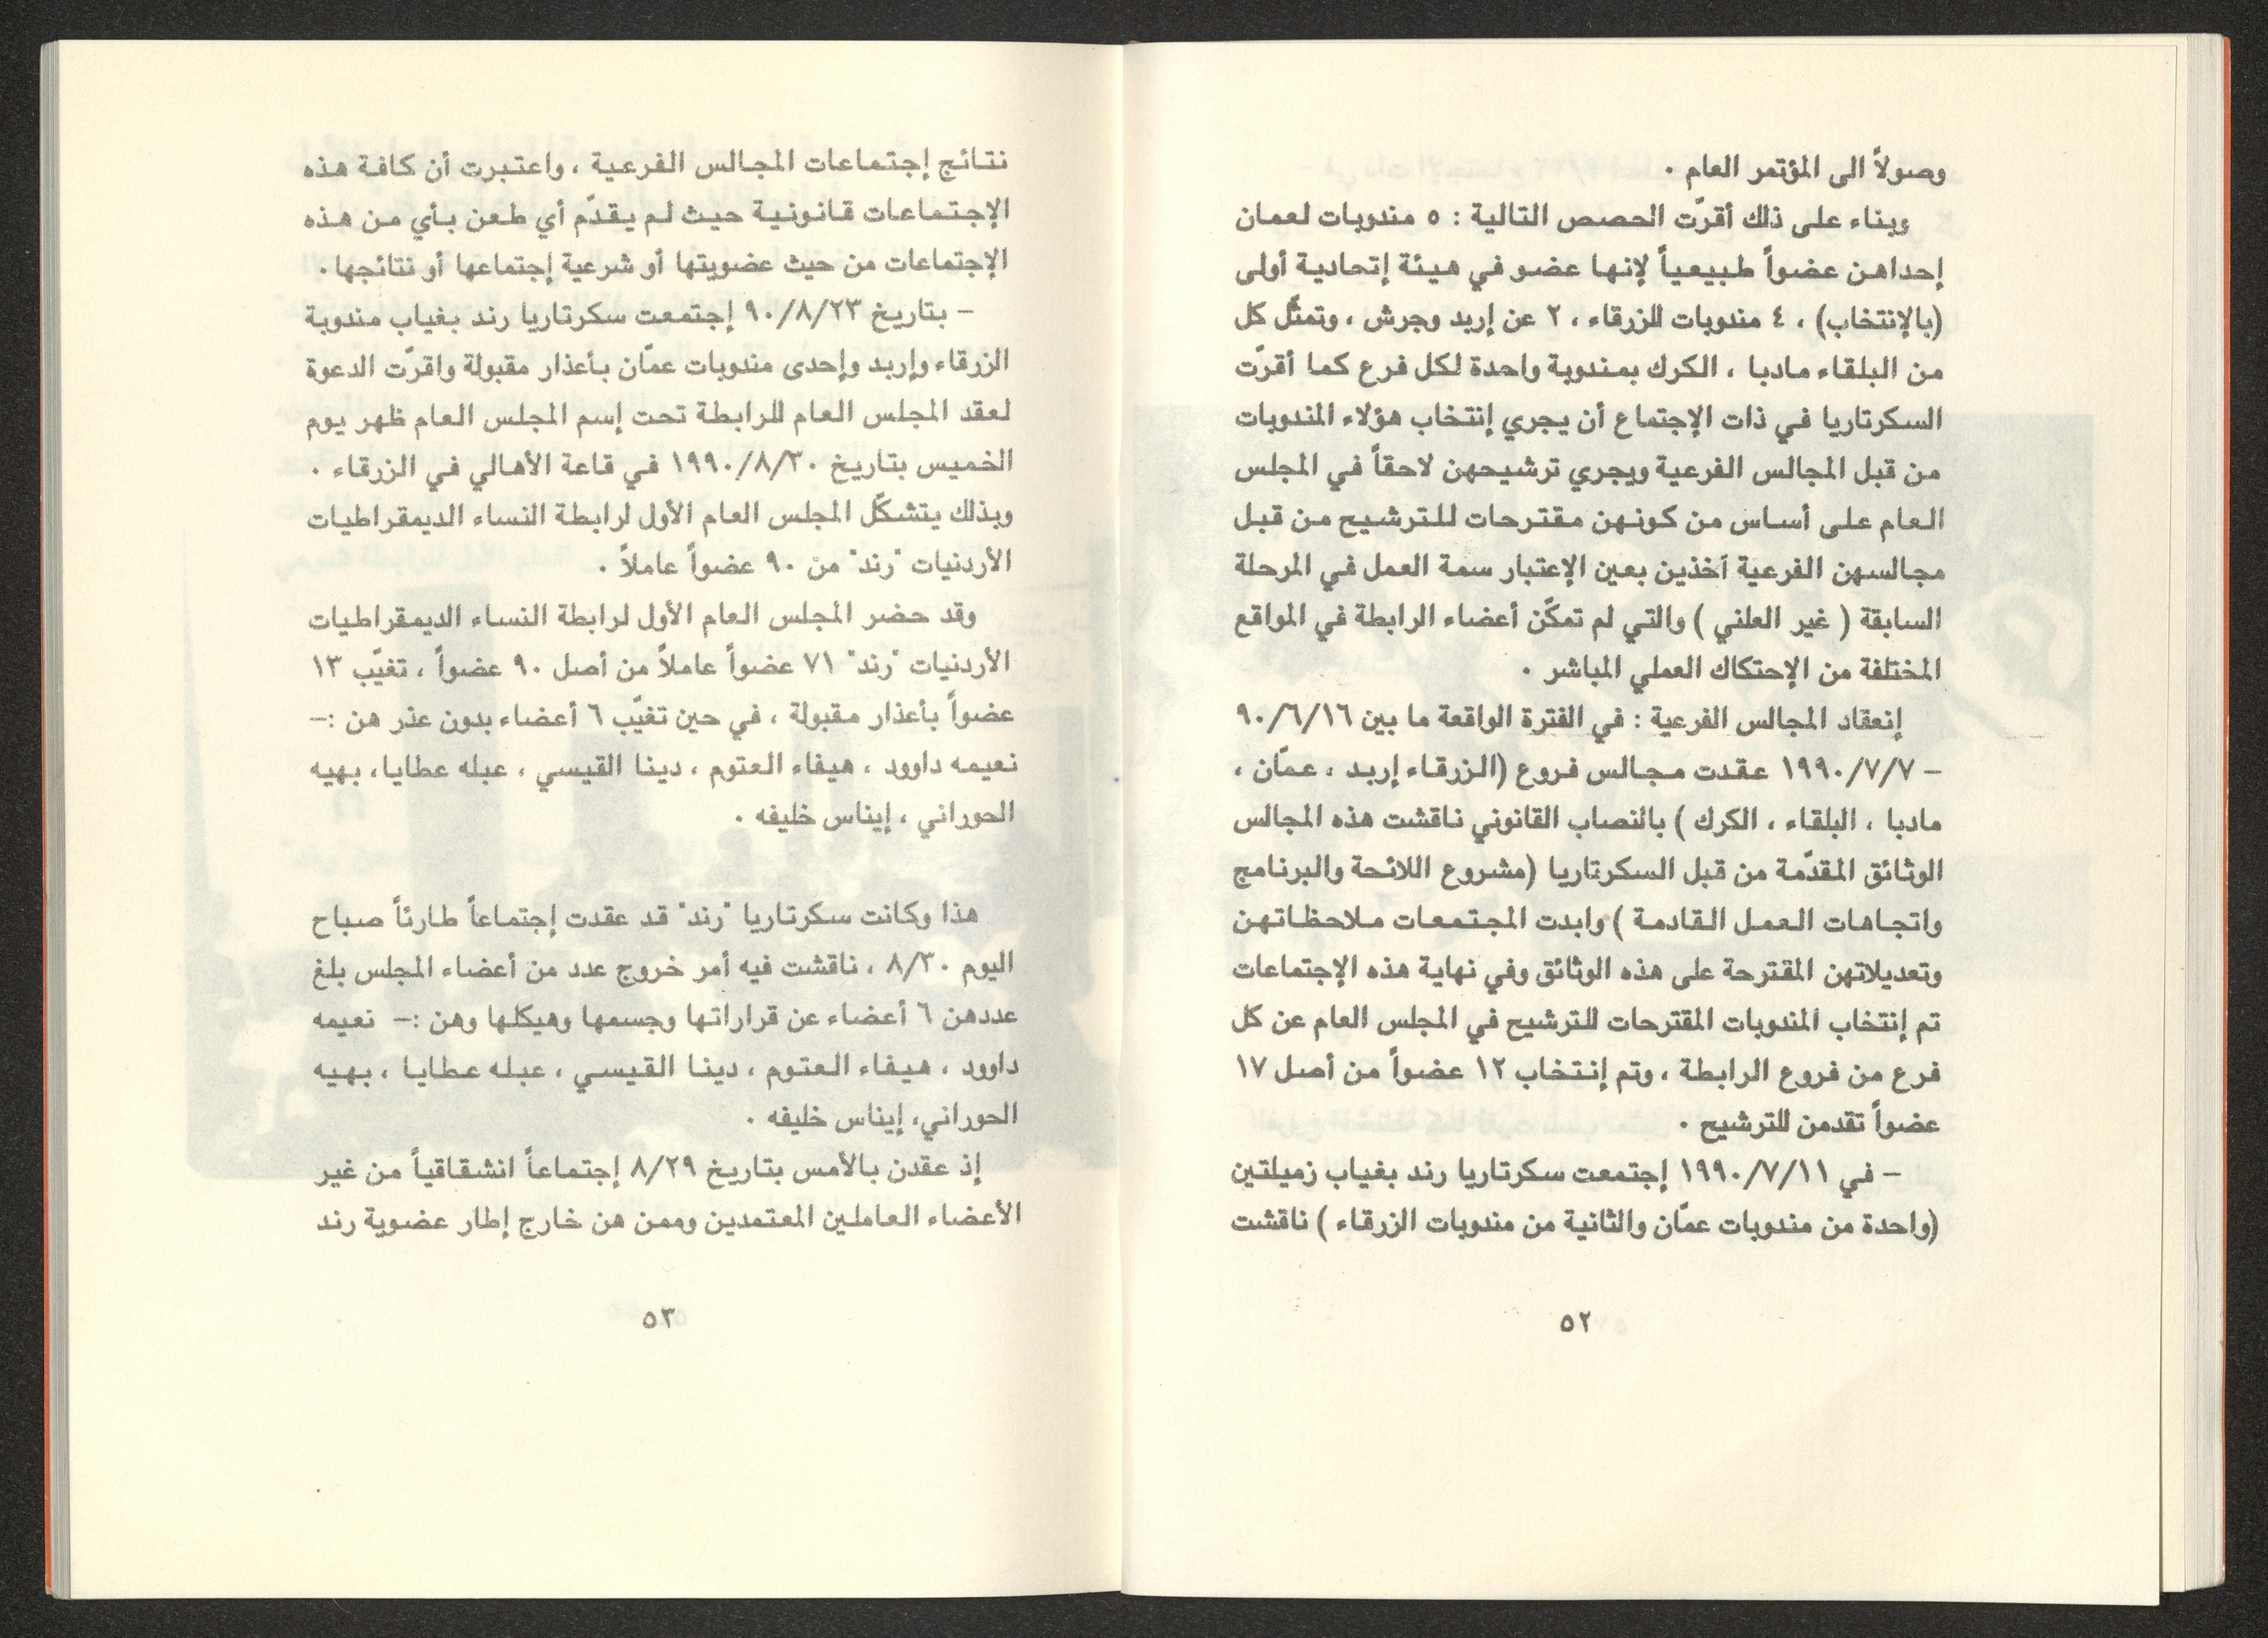 وصولاً الى المؤتمر العام ٠
وبناء على ذلك أقرّت الحصص التالية : ٥ مندوبات لعمان
إحداهن عضواً طبيعياً لإنها عضو في هيئة إتحادية أولى
(بالإنتخاب) ، ٤ مندوبات للزرقاء ، ٢ عن إربد وجرش ، وتمثّل كل
من البلقاء مادبا ، الكرك بمندوبة واحدة لكل فرع كما أقرّت
السكرتاريا في ذات الإجتماع أن يجري إنتخاب هؤلاء المندوبات
من قبل المجالس الفرعية ويجري ترشيحهن لاحقاً في المجلس
العام على أساس من كونهن مقترحات للترشيح من قبل
مجالسهن الفرعية آخذين بعين الإعتبار سمة العمل في المرحلة
السابقة ( غير العلني ) والتي لم تمكّن أعضاء الرابطة في المواقع
المختلفة من الإحتكاك العملي المباشر ٠
إنعقاد المجالس الفرعية : في الفترة الواقعة ما بين ٩٠/٦/١٦
– ١٩٩٠/٧/٧ عقدت مجالس فروع (الزرقاء إربد ، عمّان ،
مادبا ، البلقاء ، الكرك ) بالنصاب القانوني ناقشت هذه المجالس
الوثائق المقدّمة من قبل السكرتاريا (مشروع اللائحة والبرنامج
واتجاهات العمل القادمة ) وابدت المجتمعات ملاحظاتهن
وتعديلاتهن المقترحة على هذه الوثائق وفي نهاية هذه الإجتماعات
تم إنتخاب المندوبات المقترحات للترشيح في المجلس العام عن كل
فرع من فروع الرابطة ، وتم إنتخاب ١٢ عضواً من أصل ١٧
عضواً تقدمن للترشيح ٠
– في ١٩٩٠/٧/١١ إجتمعت سكرتاريا رند بغياب زميلتين
(واحدة من مندوبات عمّان والثانية من مندوبات الزرقاء ) ناقشت
٥٢
نتائج إجتماعات المجالس الفرعية ، واعتبرت أن كافة هذه
الإجتماعات قانونية حيث لم يقدّم أي طعن بأي من هذه
الإجتماعات من حيث عضويتها أو شرعية إجتماعها أو نتائجها ٠
– بتاريخ ٩٠/٨/٢٣ إجتمعت سكرتاريا رند بغياب مندوبة
الزرقاء وإربد وإحدى مندوبات عمّان بأعذار مقبولة واقرّت الدعوة
لعقد المجلس العام للرابطة تحت إسم المجلس العام ظهر يوم
الخميس بتاريخ ١٩٩٠/٨/٣٠ في قاعة الأهالي في الزرقاء ٠
وبذلك يتشكّل المجلس العام الأول لرابطة النساء الديمقراطيات
الأردنيات "رند" من ٩٠ عضواً عاملاً ٠
وقد حضر المجلس العام الأول لرابطة النساء الديمقراطيات
الأردنيات "رند" ٧١ عضواً عاملاً من أصل ٩٠ عضواً ، تغيّب ١٣
عضواً بأعذار مقبولة ، في حين تغيّب ٦ أعضاء بدون عذر هن :–
نعيمه داوود ، هيفاء العتوم ، دينا القيسي ، عبله عطايا، بهيه
الحوراني ، إيناس خليفه ٠
هذا وكانت سكرتاريا "رند" قد عقدت إجتماعاً طارئاً صباح
اليوم ٨/٣٠ ، ناقشت فيه أمر خروج عدد من أعضاء المجلس بلغ
عددهن ٦ أعضاء عن قراراتها وجسمها وهيكلها وهن :– نعيمه
داوود ، هيفاء العتوم ، دينا القيسي ، عبله عطايا ، بهيه
الحوراني، إيناس خليفه ٠
إذ عقدن بالأمس بتاريخ ٨/٢٩ إجتماعاً انشقاقياً من غير
الأعضاء العاملين المعتمدين وممن هن خارج إطار عضوية رند
٥٣